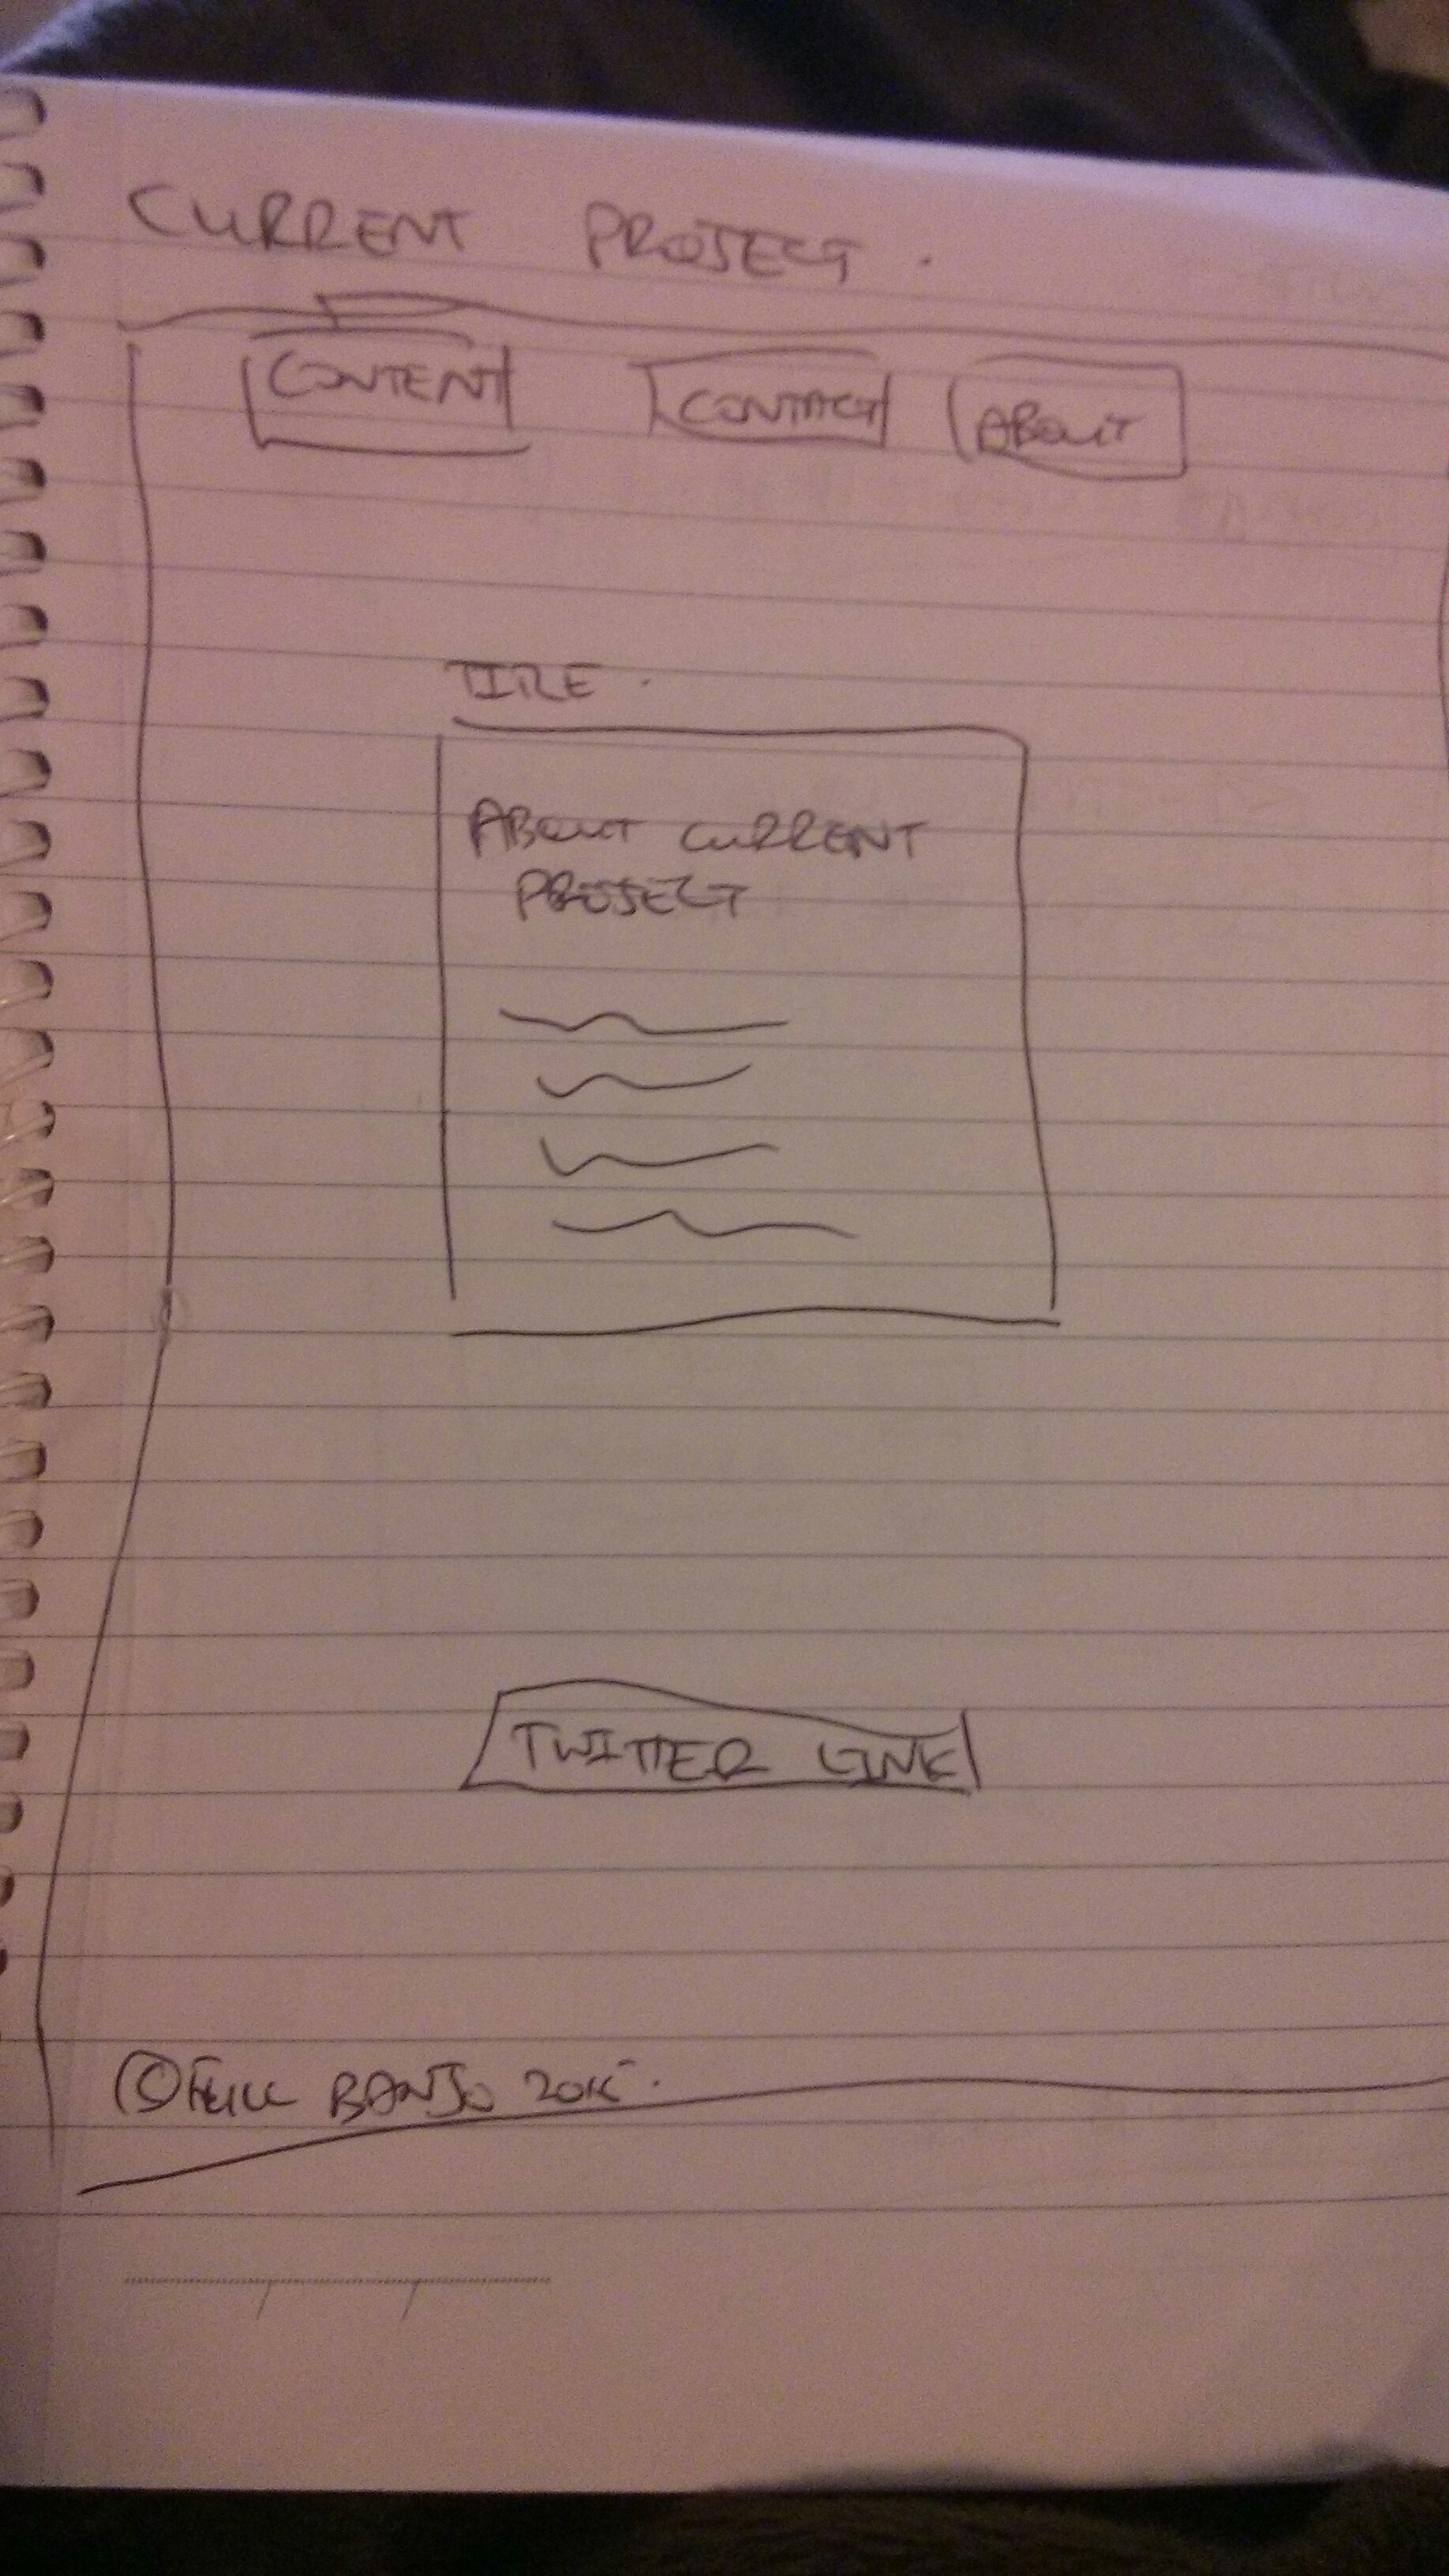 CURRENT PROJECT.
CONTENT CONTACT ABOUT
TITLE.
ABOUT CURRENT
PROJECT
TWITTER LINK
© BANJO